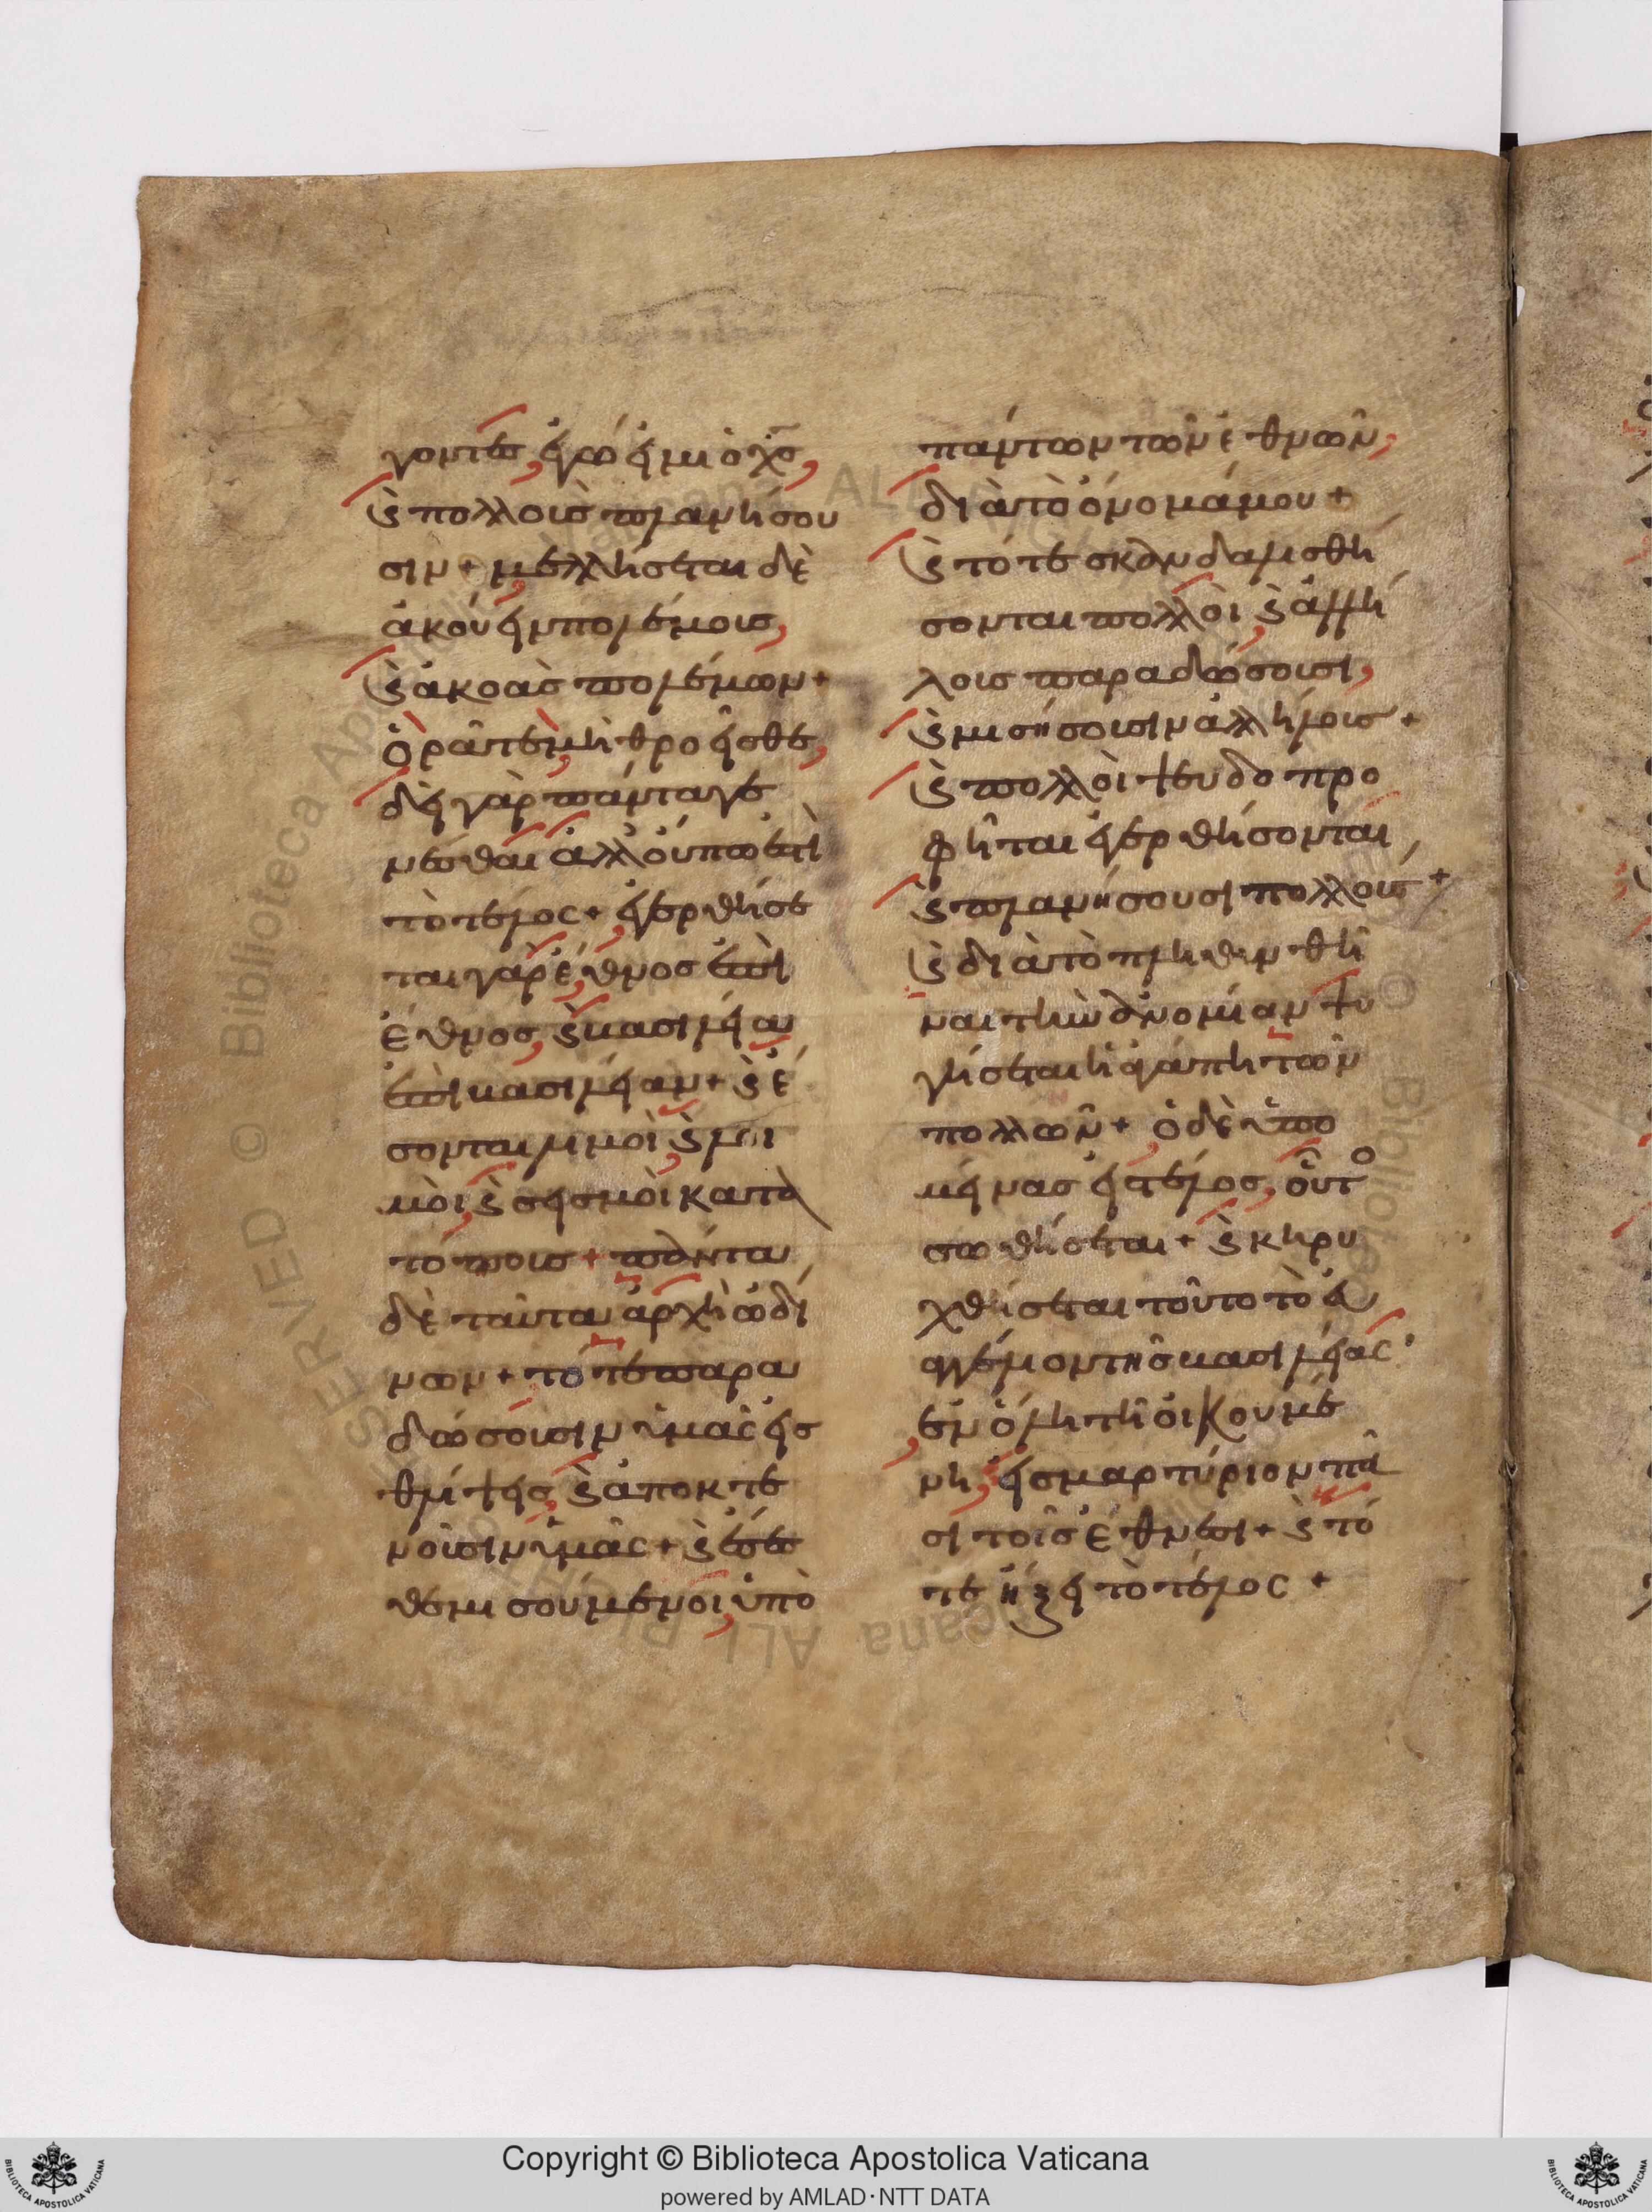 γοντες, ἐγώ εἰμι ὁ χς,
ϗ πολλοὺς πλανήσου
σιν + μελλήσεται δὲ
ἀκούειν πολέμοις,
ϗ ἀκοὰς πολέμων +
ὁρᾶτε, μὴ θροεῖσθε,
δεῖ γὰρ πάντα γε
νέσθαι ἀλλ' οὔπω ἐστὶ
τὸ τέλος + ἐγερθήσε
ται γὰρ ἔθνος ἐπὶ
ἔθνος, ϗ βασιλεία
ἐπὶ βασιλείαν + ϗ ἔ
σονται λιμοὶ, ϗ λοι
μοὶ, ϗ σεισμοὶ κατὰ
τόπους + πάντα
δὲ ταῦτα ἀρχὴ ὠδί
νων + τότε παρα
δώσουσιν ὑμᾶς εἰς
θλίψεις, ϗ ἀποκτε
νοῦσιν ὑμᾶς + ϗ ἔσεσ
θε μισούμενοι, ὑπὸ
πάντων τῶν ἐθνῶν,
διὰ τὸ ὄνομά μου +
ϗ τότε σκανδαλισθή
σονται πολλοὶ, ϗ ἀλλή
λους παραδώσουσι,
ϗ μισήσουσιν ἀλλήλους +
ϗ πολλοὶ ψευδοπρο
φῆται ἐγερθήσονται
ϗ πλανήσουσι πολλούς +
ϗ διὰ τὸ πληθυνθῆ
ναι τὴν ἀνομίαν ψυ
γήσεται ἡ ἀγάπη τῶν
πολλῶν + ὁ δὲ ὑπο
μείνας εἰς τέλος, οὗτο
σωθήσεται + ϗ κηρυ
χθήσεται τοῦτο τὸ εὐ
αγγέλιον τῆς βασιλείας
ἐν ὅλῃ τῇ οἰκουμέ
νῃ, εἰς μαρτύριον πᾶ
σι τοῖς ἔθνεσι + ϗ τό
τε ἥξει τὸ τέλος +
Copyright © Biblioteca Apostolica Vaticana
powered by AMLAD·NTT DATA